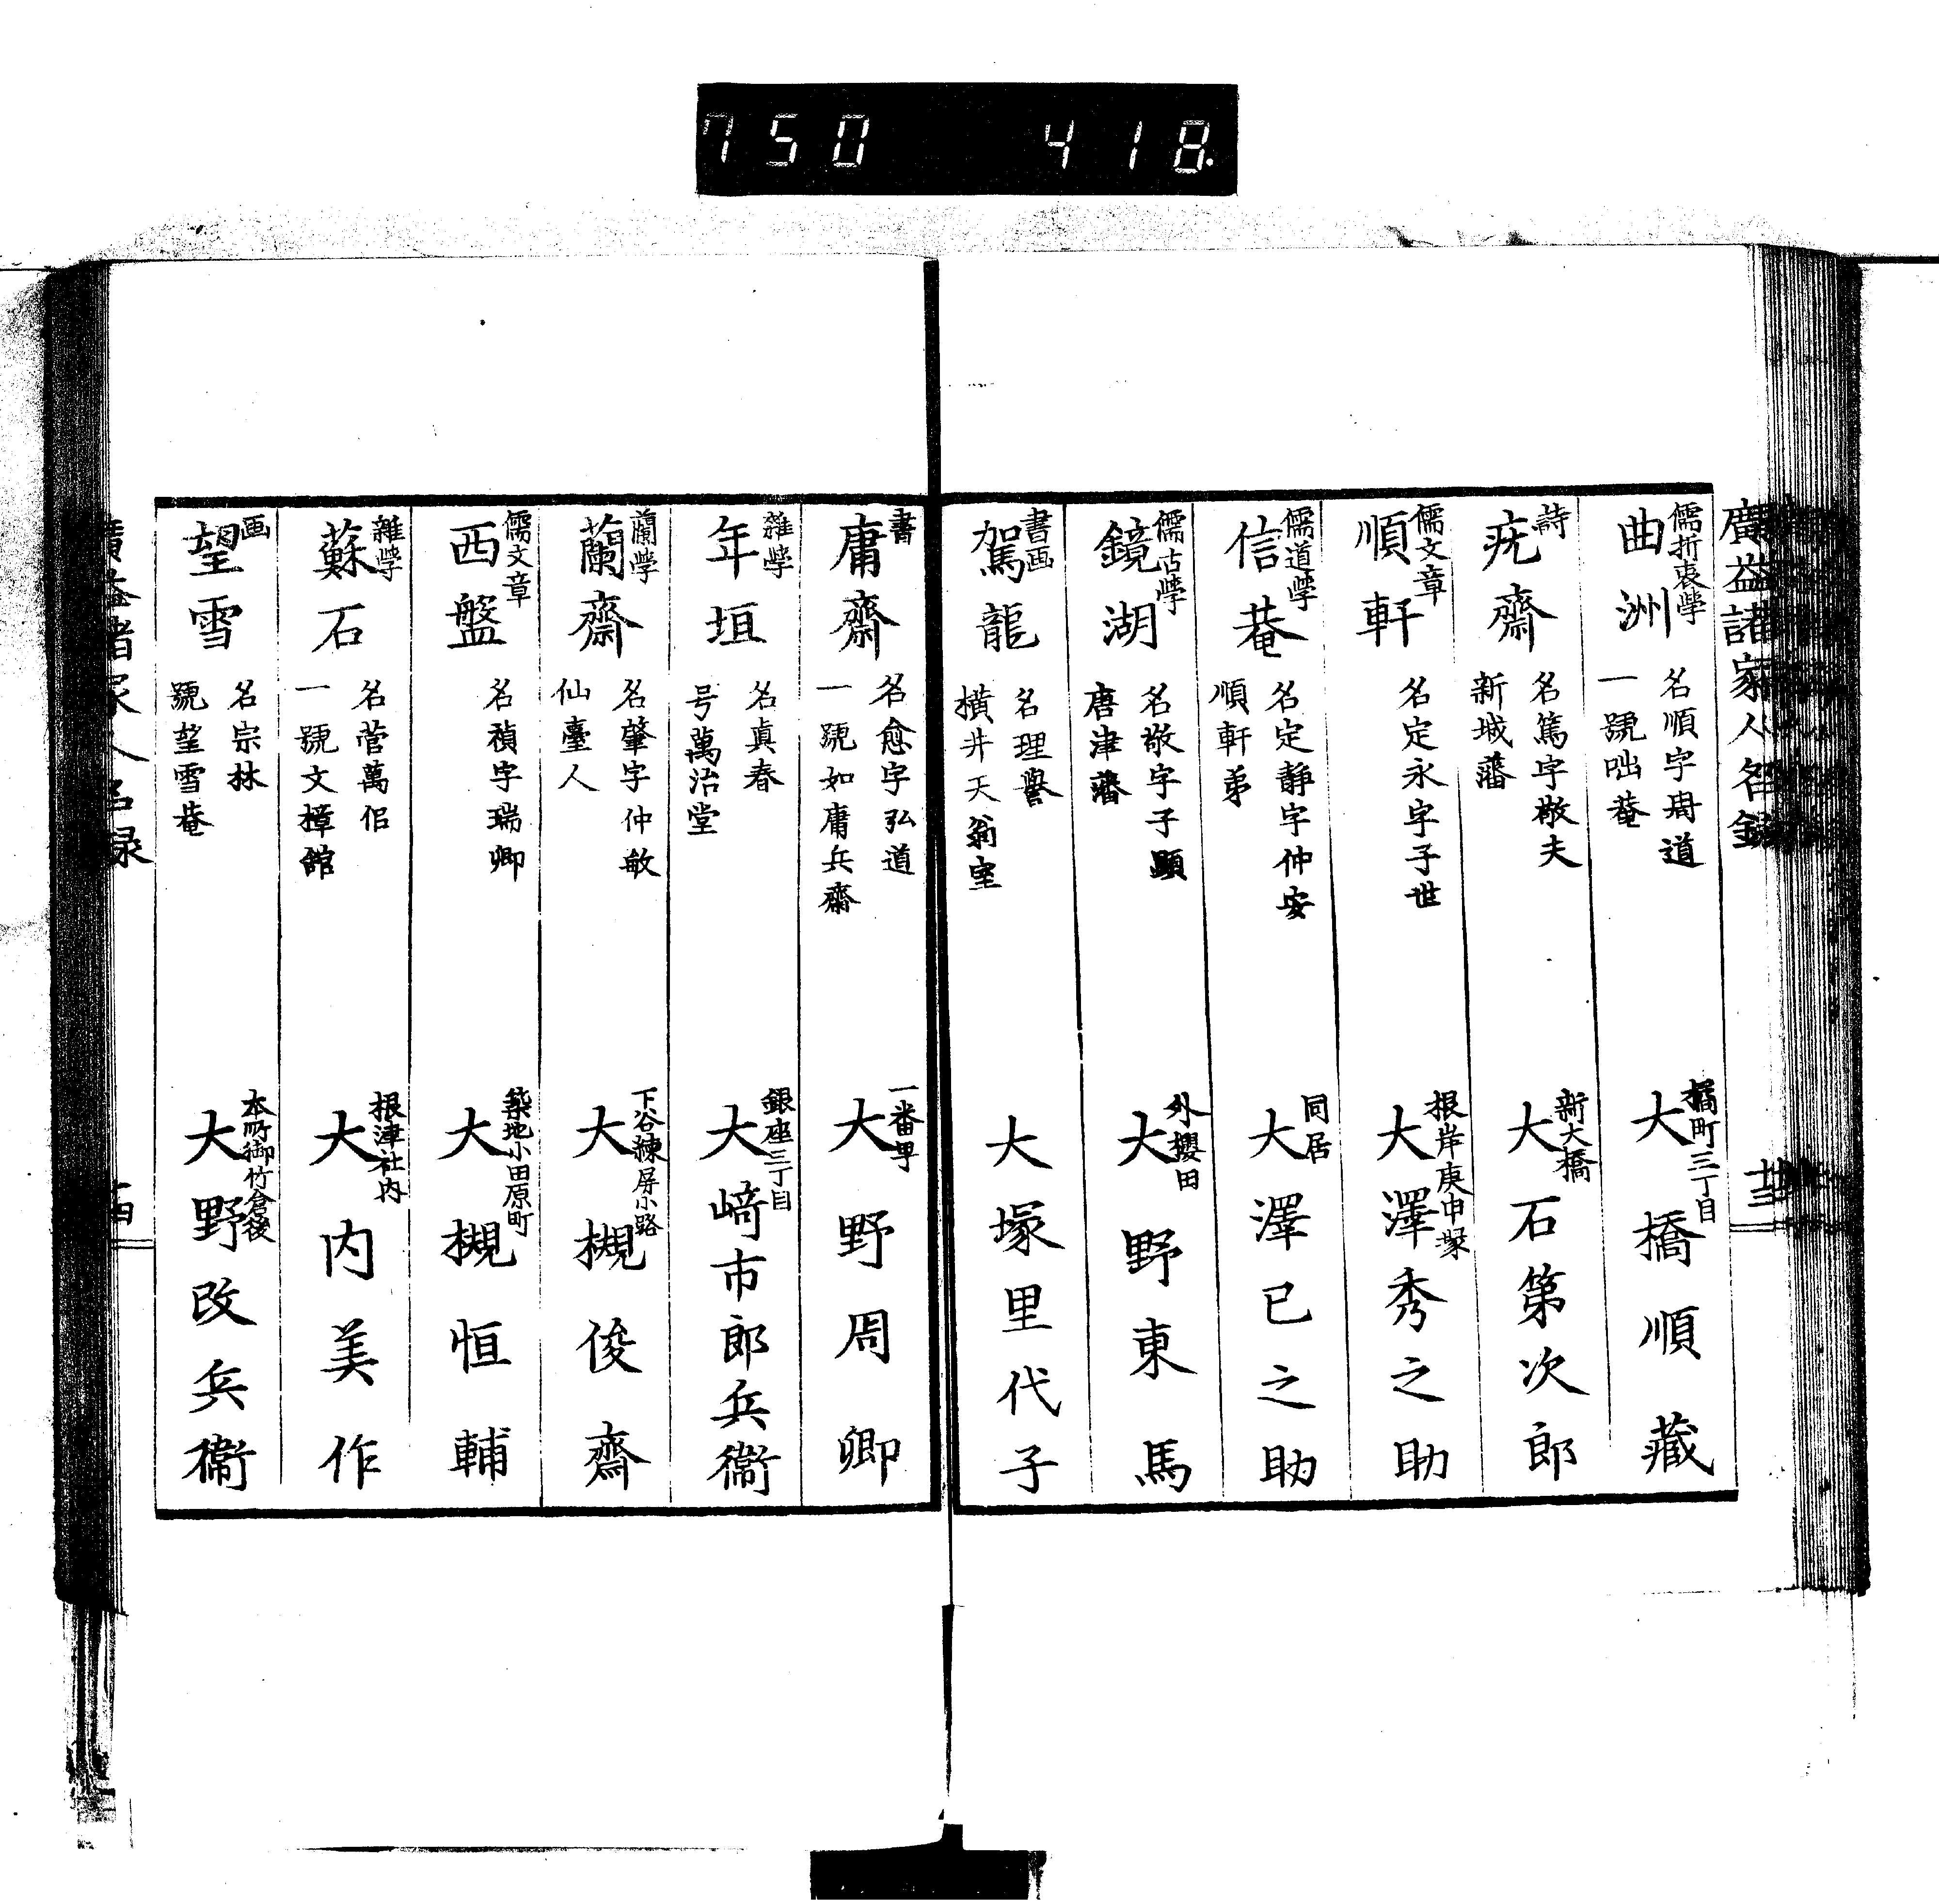 750 418.
廣益諸家人名録
儒折衷学
曲洲
名順字周道
一號咄菴
橘町三丁目
大橋順藏
詩
疣齋
名篤字敬夫
新城藩
新大橋
大石第次郎
儒文章
順軒
名定永字子世
根岸庚申塚
大澤秀之助
儒道学
信菴
名定靜字仲安
順軒弟
同居
大澤已之助
儒古学
鏡湖
名敬字子顕
唐津藩
外櫻田
大野東馬
書画
駕龍
名理譽
横井天翁室
大塚里代子
廿三
書
庸齋
名愈字弘道
一號如庸兵齋
一番甼
大野周卿
雜学
年垣
名眞春
号萬治堂
銀座三丁目
大﨑市郎兵衞
蘭学
蘭齋
名肇字仲敏
仙臺人
下谷練屏小路
大槻俊齋
儒文章
西盤
名禎字瑞卿
築地小田原町
大槻恒輔
雜学
蘇石
名菅萬佀
一號文樟館
根津社内
大内美作
画
望雪
名宗林
號望雪菴
本所御竹倉後
大野改兵衞